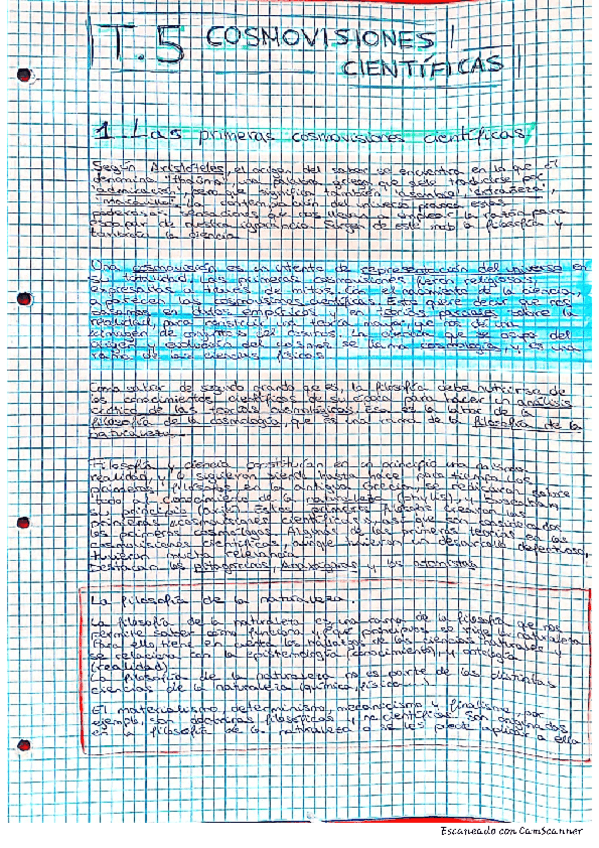 T.5 COSMOVISIONES
CIENTÍFICAS
1. Las primeras cosmovisiones científicas
Según Aristóteles, el origen del saber se encuentra en lo que él
denomina una palabra griega que suele traducirse por
"admiración", pero que significa también
"maravilla". La contemplación del universo provoca estas
poderosas sensaciones que nos llevan a emplear la razón para
escapar de nuestra ignorancia. Surgen de este modo la filosofía y
también la ciencia
Una cosmovisión es un intento de representación del universo en
su totalidad. Las primeras cosmovisiones fueron religiosas,
expresadas a través de mitos. Con el nacimiento de la ciencia,
aparecen las cosmovisiones científicas. Esto quiere decir que nos
basamos en datos empíricos y en teorías parciales sobre la
realidad, para construir una teoría mayor, que nos dé una
del
origen y evolución del cosmos se llama cosmología, y es una
rama de las ciencias físicas
Como saber de segundo grado que es, la filosofía debe nutrirse de
los conocimientos científicos de su época para hacer un análisis
crítico de las teorías cosmológicas. Esa es la labor de la
filosofía de la cosmología, que es una rama de la filosofía de la
naturaleza.
Filosofía y ciencia constituían en un principio una misma
realidad, y lo siguieron siendo hasta hace poco tiempo. Los
primeros filósofos en la antigua Grecia se
todo al conocimiento de la naturaleza (physis), y
su principio (arjé). Estos primeros filósofos crearon las
primeras "cosmovisiones científicas", así que son considerados
los primeros cosmólogos. Algunas de las primeras teorías en las
cosmovisiones científicas, aunque tuvieron un desarrollo defectuoso,
tuvieron mucha relevancia.
Destacan los pitagóricos, Anaxágoras y los atomistas
La filosofía de la naturaleza.
La filosofía de la naturaleza es una rama de la filosofía que nos
permite saber cómo funciona y qué principios se rige la naturaleza
Para ello, tiene en cuenta los trabajos de las ciencias naturales y
se relaciona con la epistemología (conocimiento), y ontología
(realidad)
La filosofía de la naturaleza no es parte de las distintas
ciencias de la naturaleza (química, física...)
El materialismo, determinismo, mecanicismo y finalismo, por
ejemplo, son doctrinas filosóficas y no científicas. Son originadas
en la filosofía de la naturaleza o se les puede aplicar a ella
Escaneado con CamScanner